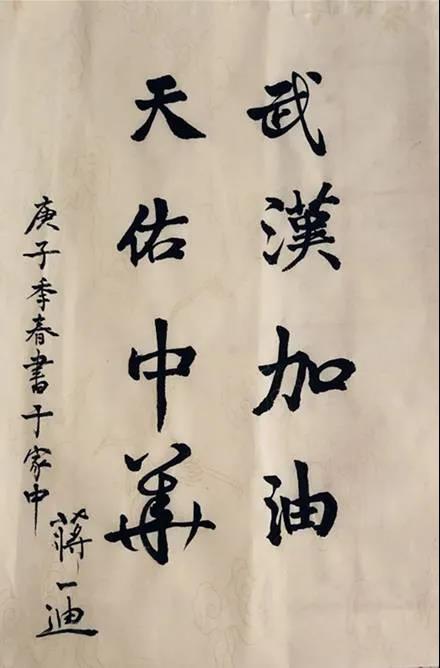 武漢加油
天佑中華
庚子季春書于家中
蔣一迪